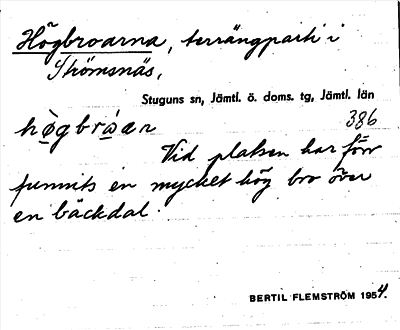 Högbroarna, terrängparti i
Strömsnäs,
Stuguns sn, Jämtl. ö. doms. tg, Jämtl. län
386
hø̀gbrǿær
Vid platsen har förr
funnits en mycket hög bro över
en bäckdal.
BERTIL FLEMSTRÖM 1954.